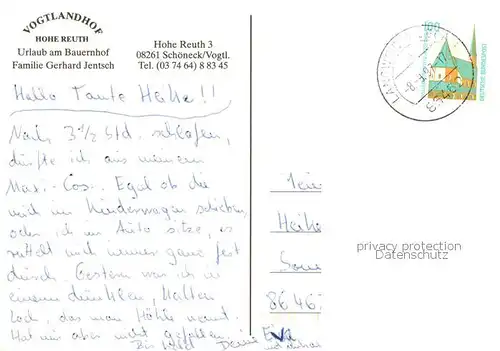 VOGTLANDHOF
HOHE REUTH
Urlaub am Bauernhof
Familie Gerhard Jentsch
Hohe Reuth 3
08261 Schöneck/Vogtl.
Tel. (03 74 64) 8 83 45
DEUTSCHE BUNDESPOST
Hallo Tante Heike!!
Nach 3 1/2 Std. schlafen,
durfte ich aus meinem
Maxi-Cosi. Egal ob die
mich im Kinderwagen schieben,
oder ich im Auto sitze, es
rüttelt mich immer ganz fest
durch. Gestern war ich in
einem dunklen, kalten
Loch, das man Höhle nennt.
Hat mir aber nicht gefallen.
Bis bald Deine Eva
Heike
8646
privacy protection
Datenschutz